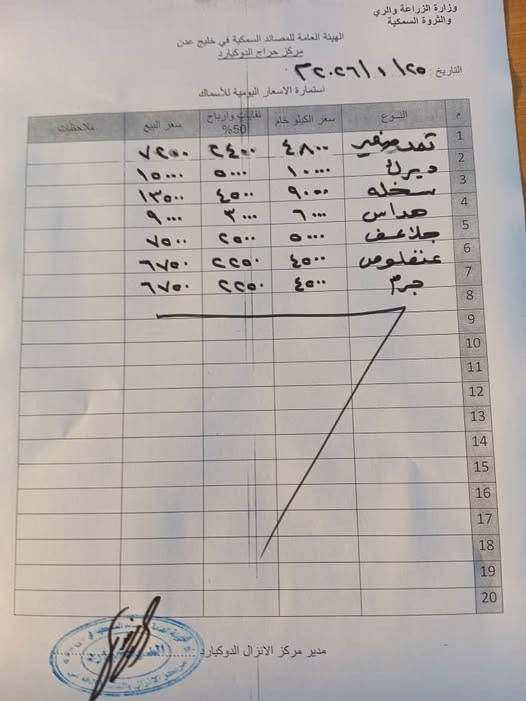 وزارة الزراعة والري
والثروة السمكية
الهيئة العامة للمصائد السمكية في خليج عدن
مركز حراج الدوكيارد
التاريخ : ٢٥/ ١ /٢٠٢٦م
استمارة الاسعار اليومية للأسماك
م النوع سعر الكيلو خام نفايات وارباح 50% سعر البيع ملاحظات
1 ثمد صغير ٤٨٠٠ ٢٤٠٠ ٧٢٠٠
2 ديرك ١٠٠٠٠ ٥٠٠٠ ١٥٠٠٠
3 سخله ٩٠٠٠ ٤٥٠٠ ١٣٥٠٠
4 هداس ٦٠٠٠ ٣٠٠٠ ٩٠٠٠
5 ٥٠٠٠ ٢٥٠٠ ٧٥٠٠
6 عنفلوص ٤٥٠٠ ٢٢٥٠ ٦٧٥٠
7 ٤٥٠٠ ٢٢٥٠ ٦٧٥٠
8
9
10
11
12
13
14
15
16
17
18
19
20
مدير مركز الانزال الدوكيارد